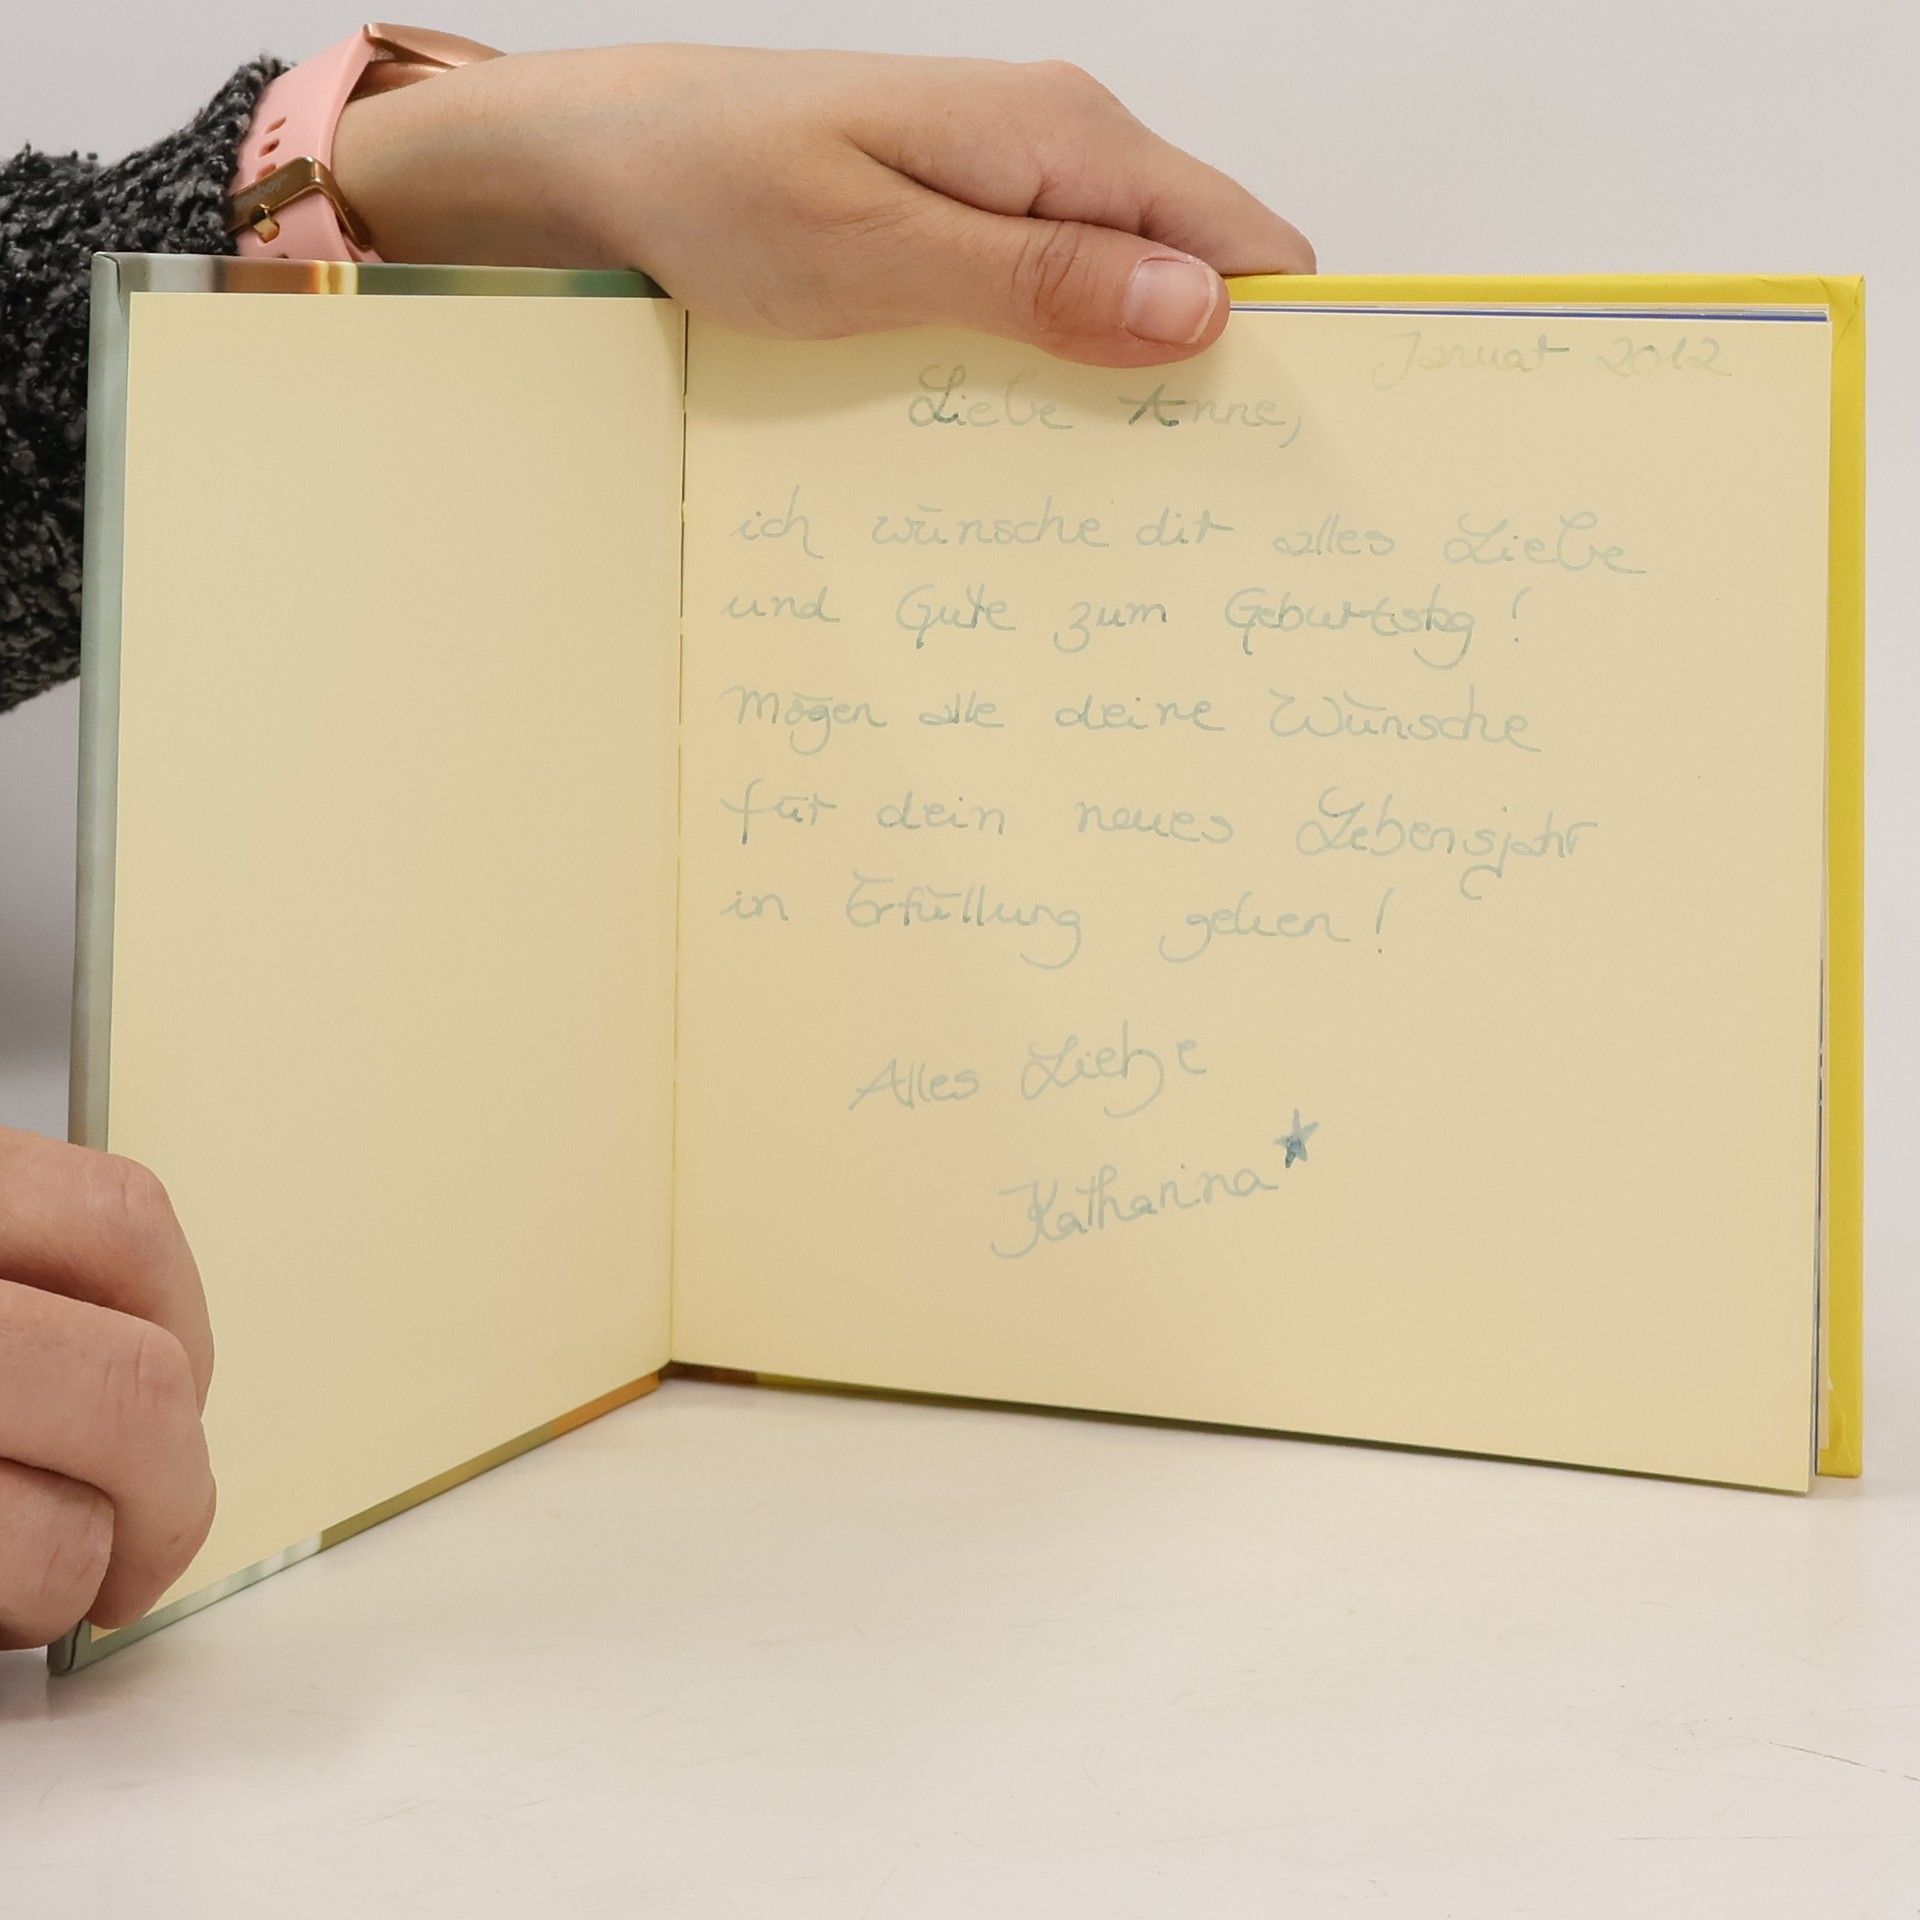 Januar 2012
Liebe Anne,
ich wünsche dir alles Liebe
und Gute zum Geburtstag!
Mögen alle deine Wünsche
für dein neues Lebensjahr
in Erfüllung gehen!
Alles Liebe
Katharina